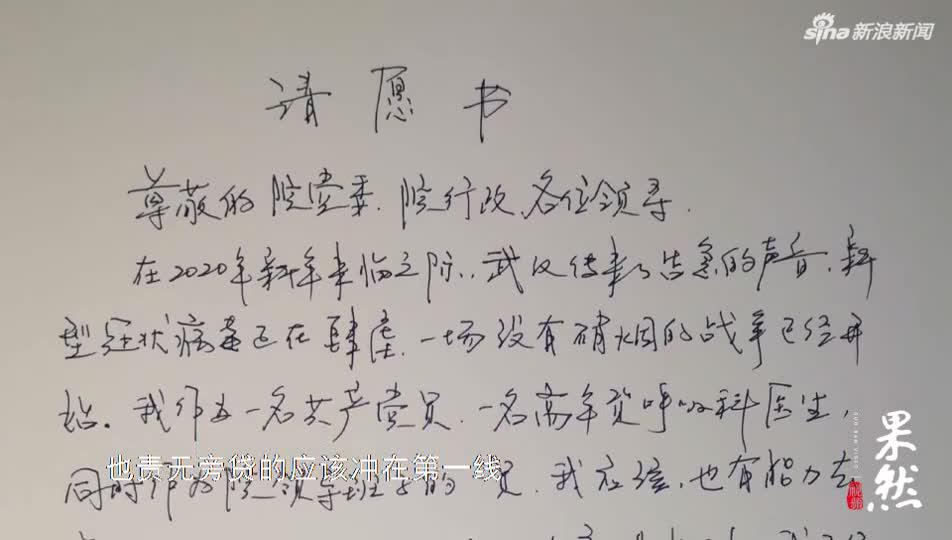 sina 新浪新闻
请愿书
尊敬的院党委、院行政、各位领导.
在2020年新年来临之际,武汉传来了告急的声音,新
型冠状病毒正在肆虐,一场没有硝烟的战争已经开
始。我作为一名共产党员,一名高年资呼吸科医生,
也责无旁贷的应该冲在第一线
同时作为院领导班子的一员,我应该,也有能力去
果然
视频